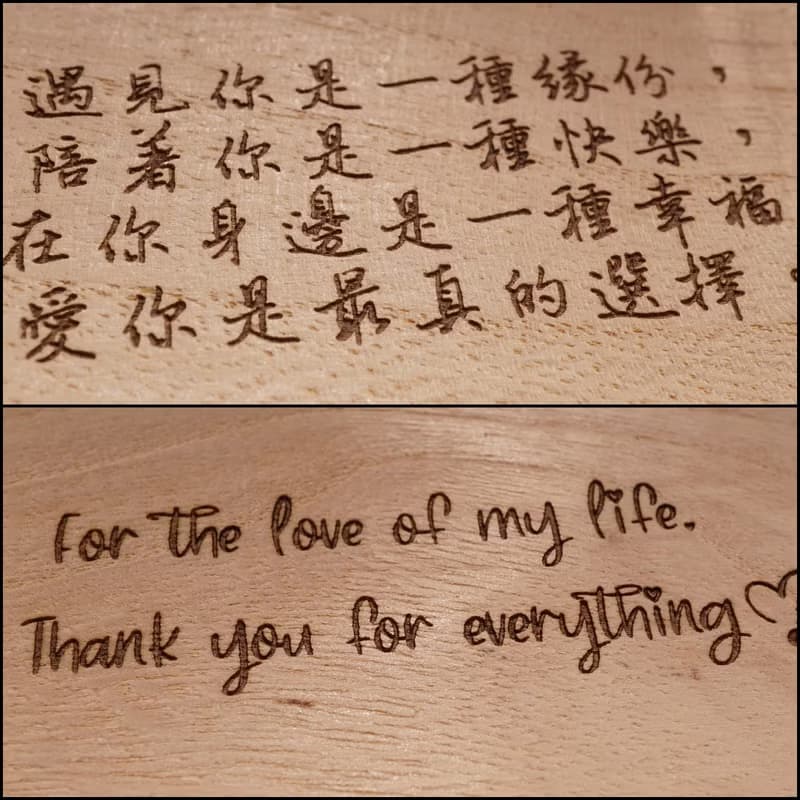 遇見你是一種緣份，
陪着你是一種快樂，
在你身邊是一種幸福
愛你是最真的選擇，
For the love of my life.
Thank you for everything♡